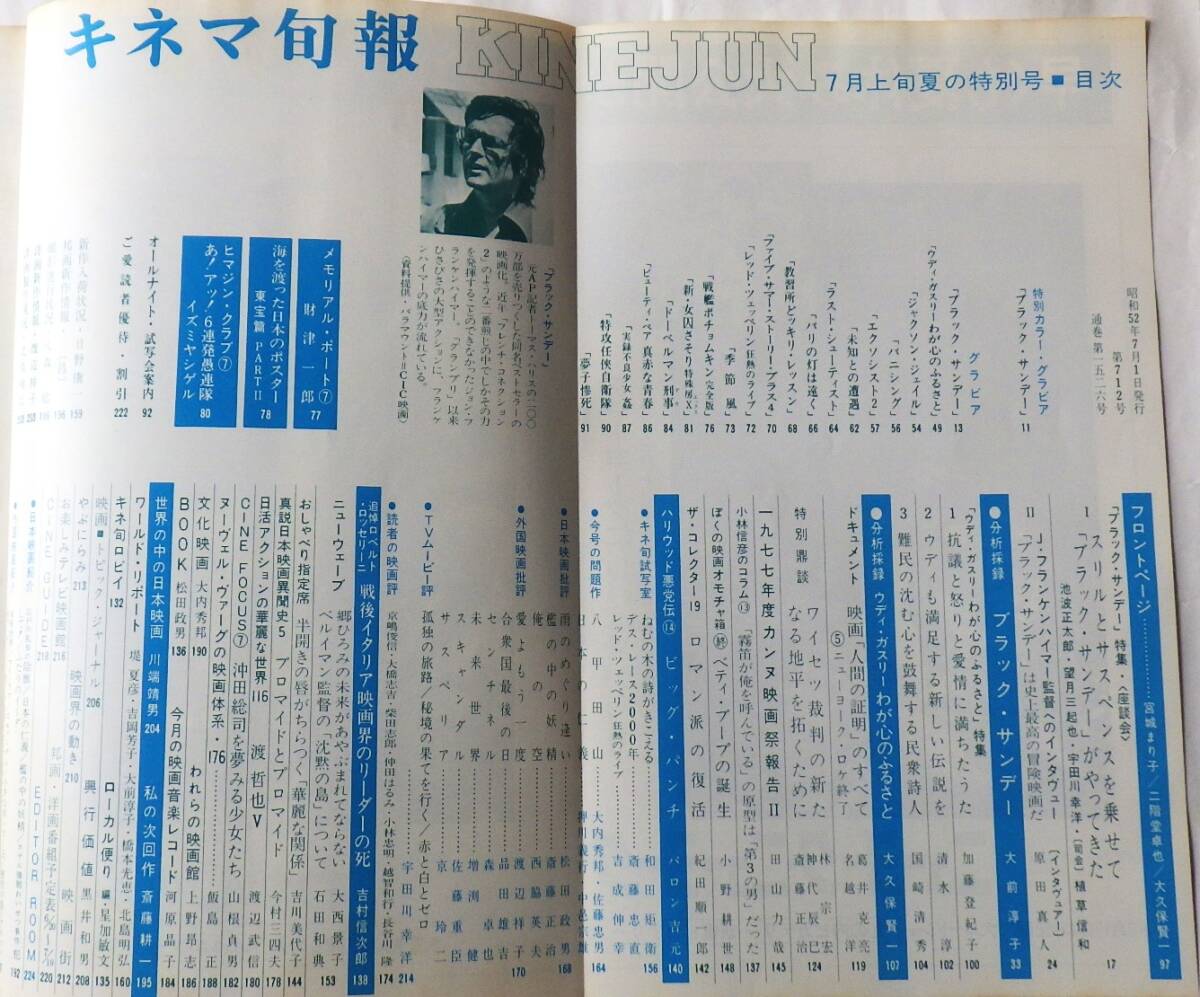 キネマ旬報
KINEJUN
7月上旬夏の特別号■目次
昭和52年7月1日発行
第712号
通巻第一五二六号
特別カラー グラビア
「ブラック・サンデー」 11
グラビア
「ブラック・サンデー」 13
「ウディ・ガスリーわが心のふるさと」 49
「ジャクソン・ジェイル」 54
「バニシング」 56
「エクソシスト2」 57
「未知との遭遇」 62
「ラスト・シューティスト」 64
「パリの灯は遠く」 66
「教習所ドッキリ・レッスン」 68
「ファイブ・サマー・ストーリー・プラス4」 70
「レッド・ツェッペリン狂熱のライブ」 72
「季節風」 73
「戦艦ポチョムキン完全版」 76
「新・女囚さそり特殊房X」 81
「ドーベルマン刑事」 84
「ビューティ・ペア 真赤な青春」 86
「実録不良少女 姦」 87
「特攻任侠自衛隊」 90
「夢子惨死」 91
「ブラック・サンデー」
元AP記者トーマス・ハリスの二〇〇
万部を売りつくした同名ベストセラーの
映画化。近年「フレンチ・コネクション
2」のような二番煎じの中でしかその力
を発揮することのできなかったジョン・フ
ランケンハイマー。「グランプリ」以来
ひさびさの大型アクションに、フランケ
ンハイマーの底力が流れている。
(資料提供、パラマウント=CIC映画)
メモリアル・ポート⑦
財津一郎 77
海を渡った日本のポスター
東宝篇 PARTⅡ 78
ヒマジン・クラブ⑦
あ!アッ!6連発愚連隊
イズミヤシゲル 80
オールナイト・試写会案内 92
ご愛読者優待・割引 222
フロント・ページ 宮城まり子/二階堂卓也/大久保賢一 97
「ブラック・サンデー」特集・〈座談会〉
Ⅰ スリルとサスペンスを乗せて
「ブラック・サンデー」がやってきた
池波正太郎・望月三起也・宇田川幸洋・[司会]植草信和 17
J・フランケンハイマー監督へのインタヴュー
Ⅱ 「ブラック・サンデー」は史上最高の冒険映画だ
[インタヴュアー]原田真人 24
●分析採録 ブラック・サンデー 大前淳子 33
「ウディ・ガスリーわが心のふるさと」特集
1 抗議と怒りと愛情に満ちたうた 加藤登紀子 100
2 ウディも満足する新しい伝説を 清水淳 102
3 難民の沈む心を鼓舞する民衆詩人 国崎清秀 104
●分析採録 ウディ・ガスリーわが心のふるさと 大久保賢一 107
ドキュメント 映画「人間の証明」のすべて
⑤ニューヨーク・ロケ終了 葛井克亮 名越洋 119
特別鼎談 ワイセツ裁判の新た
なる地平を拓くために 林宗宏 神代辰巳 斎藤正治 124
一九七七年度カンヌ映画祭報告Ⅱ 田山力哉 145
小林信彦のコラム⑬ 「霧笛が俺を呼んでいる」の原型は「第3の男」だった 137
ぼくの映画オモチャ箱㊡ ベティ・ブープの誕生 小野耕世 148
ザ・コレクター19 ロマン派の復活 紀田順一郎 142
ハリウッド悪党伝⑭ ビッグ・パンチ バロン吉元 140
●キネ旬試写室
ねむの木の詩がきこえる 和田矩衛 156
デス・レース2000年 斎藤忠直
レッド・ツェッペリン狂熱のライブ 吉成伸幸
●今号の問題作
八甲田山 大内秀邦・佐藤忠男 164
日本の仁義 押川義行・中邑宗雄
●日本映画批評
雨のめぐり逢い 松田政男 168
檻の中の妖精 斎藤正治
俺の空 西脇英夫
●外国映画批評
愛よもう一度 渡辺祥子 170
合衆国最後の日 品田雄吉
センチネル 森卓也
未来世界 増渕健
スキャンダル 佐藤重臣
サスペリア 京玲二
●TVムービー評
孤独の旅路/秘境の果てを行く/赤と白とゼロ 宇田川幸洋 214
●読者の映画評 京嶋俊信・大橋志吉・柴田志郎・仲田はるみ・小林忠明・越智和行・長谷川隆 174
追悼ロベルト・ロッセリーニ 戦後イタリア映画界のリーダーの死 吉村信次郎 138
ニューウェーブ 郷ひろみの未来があやぶまれてならない 大西景子
ベルイマン監督の「沈黙の島」について 石田和典 153
おしゃべり指定席 半開きの唇がちらつく「華麗な関係」 吉川美代子 144
真説日本映画異聞史5 ブロマイドとブロマイド 今村三四夫 178
日活アクションの華麗な世界116 渡哲也Ⅴ 渡辺武信 180
CINE FOCUS⑦ 沖田総司を夢みる少女たち 山根貞男 182
ヌーヴェル・ヴァーグの映画体系・176 飯島正 188
文化映画 大内秀邦 190
われらの映画館 上野昂志 186
BOOK 松田政男 136
今月の映画音楽レコード 河原晶子 184
世界の中の日本映画 川端靖男 204
私の次回作 斎藤耕一 195
ワールド・リポート 堤夏彦・吉岡芳子・大前淳子・橋本光恵・北島明弘 160
キネ旬ロビイ 132
ローカル便り 編・星加敏文 135
映画・トピック・ジャーナル 206
興行価値 黒井和男 208
やぶにらみ 213
映画界の動き 210
映画街 212
お楽しみテレビ映画館 216
邦画・洋画番組予定表 220
CINE GUIDE 218
EDITOR ROOM 224